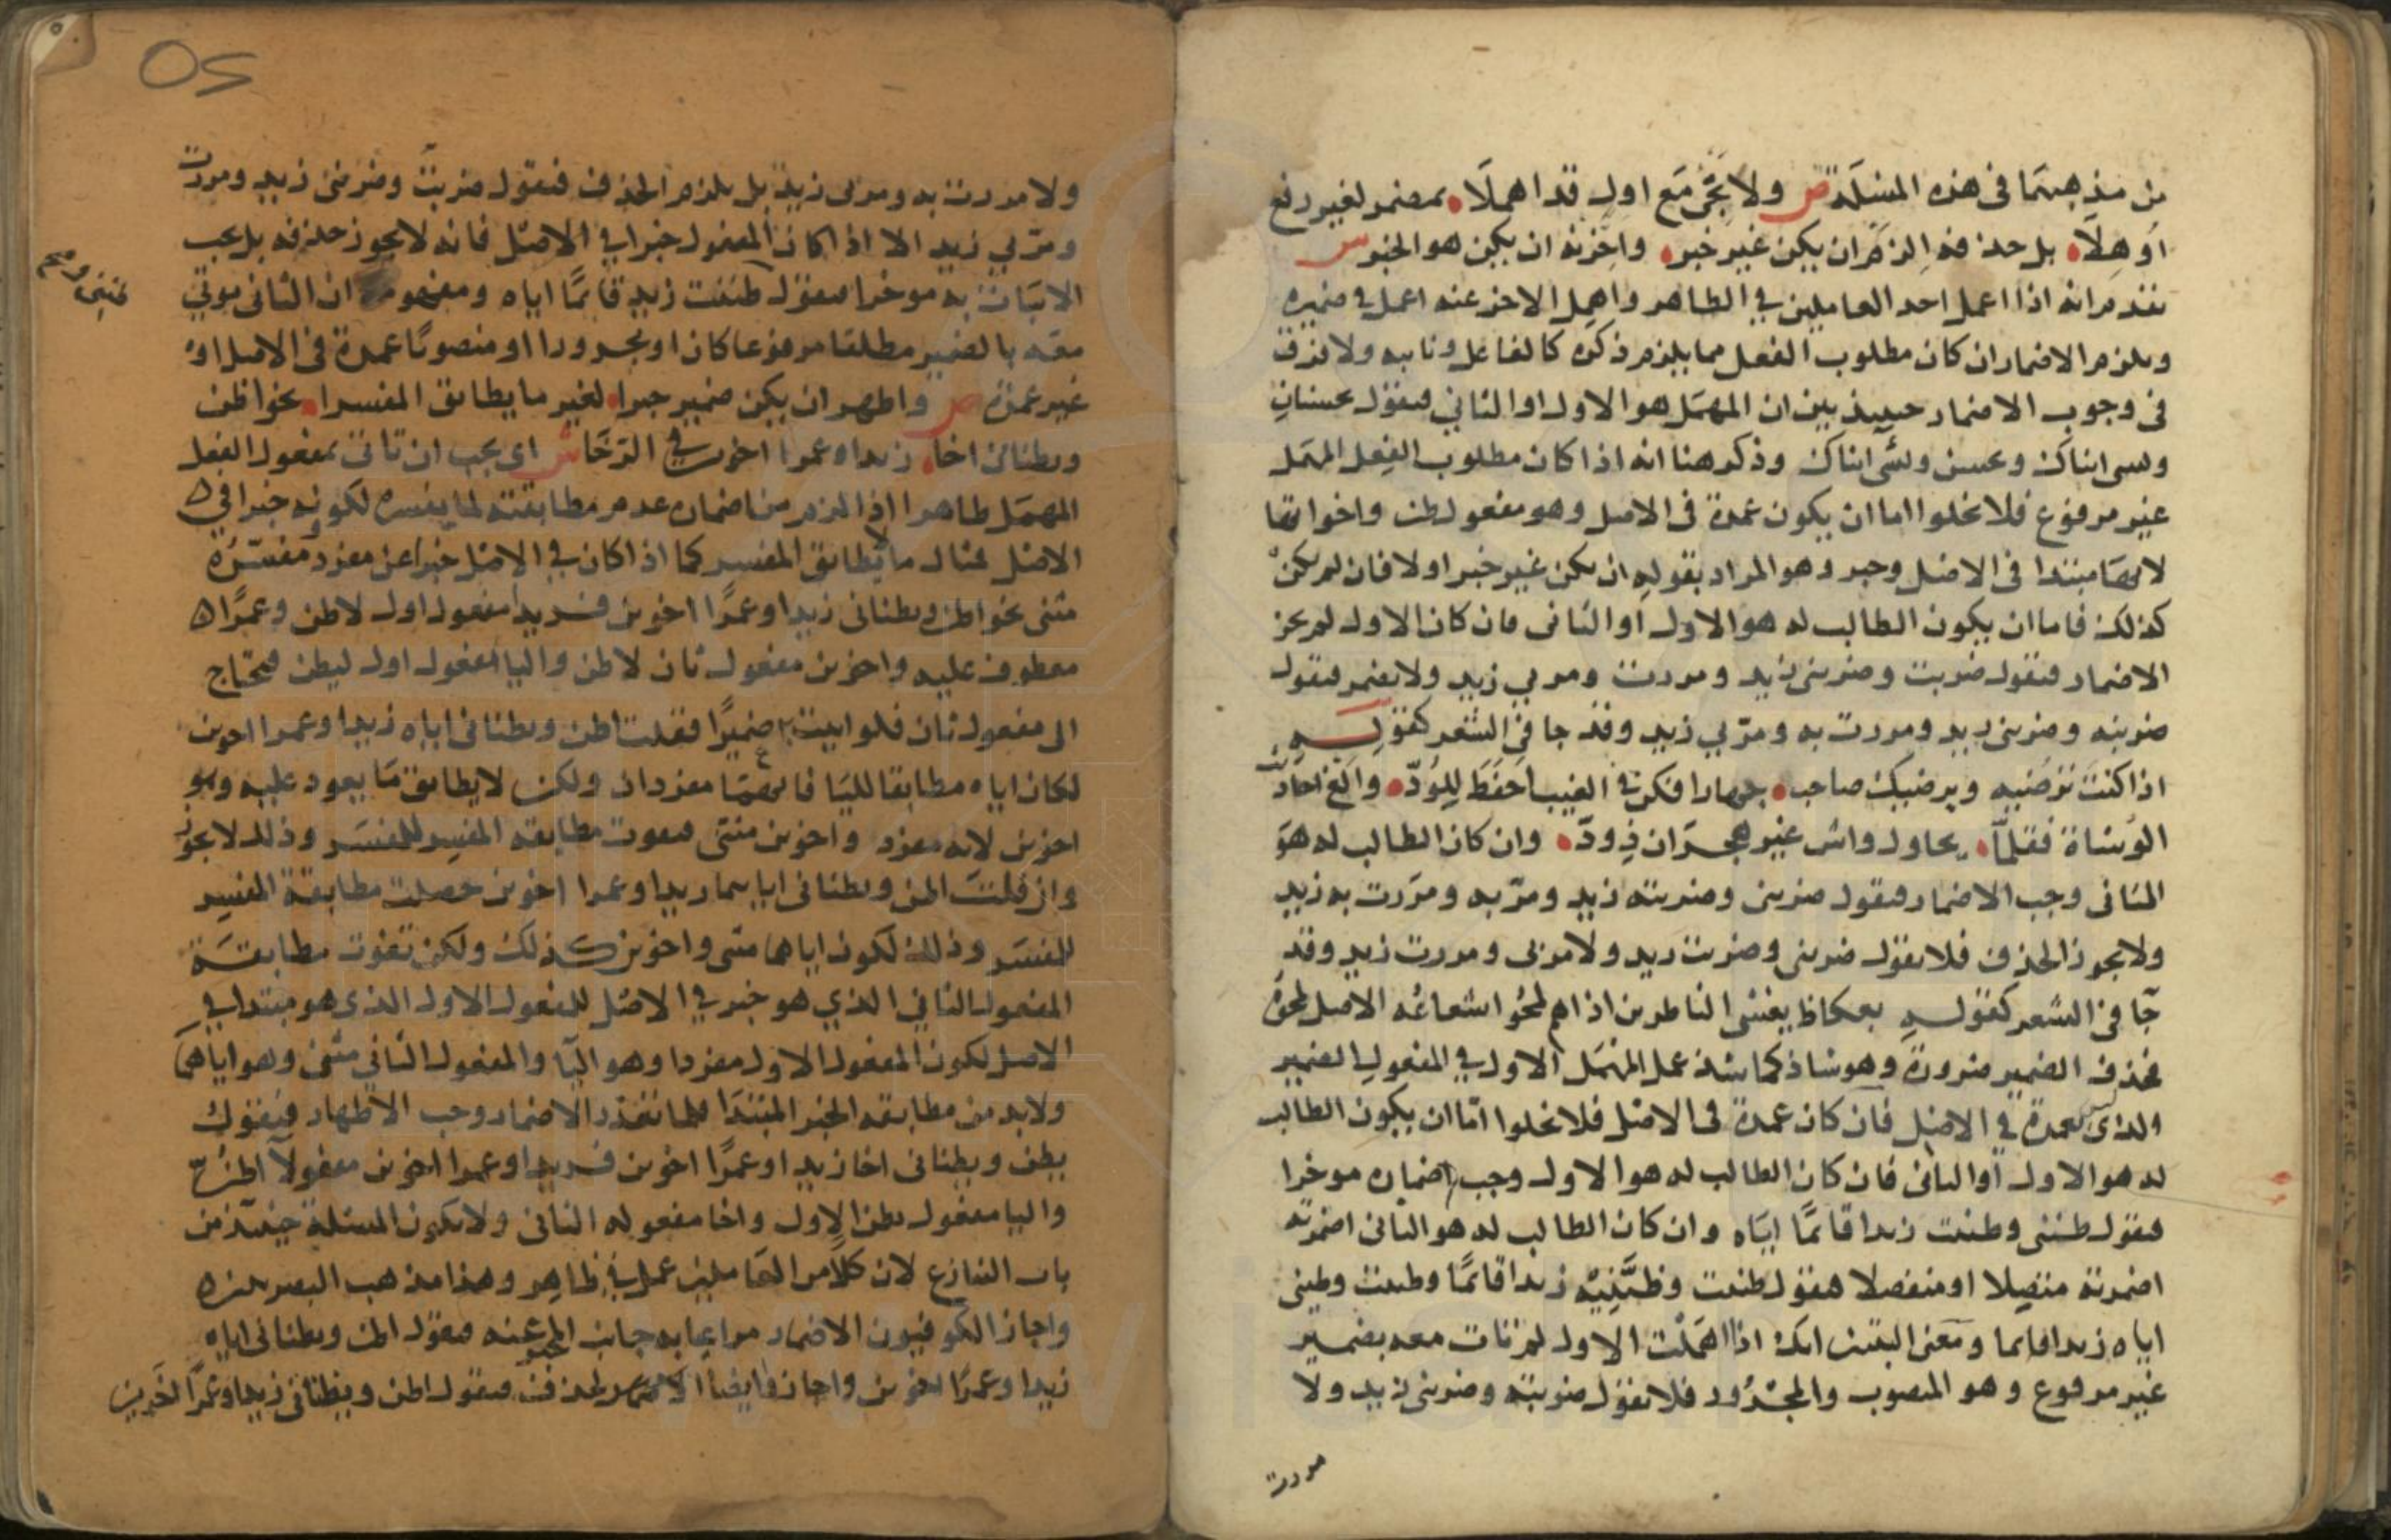 من مذهبهما فى هذه المسئلة ص ولا تجى مع اول قد اهملا بمضمر لغير رفع
اوهلا بل حذفه الزم ان يكن غير خبر واخرنه ان يكن هو الخبر س
تقدم انه اذا اعمل احد العاملين في الظاهر واهمل الاخر عنه اعمل في ضميره
ويلزم الاضمار ان كان مطلوب الفعل مما يلزم ذكره كالفاعل ونايبه ولا فرق
فى وجوب الاضمار حينيذ بين ان المهمل هو الاول او الثاني فيقول يحسنان
ويسى ابناك ويحسن ويسيى ابناك وذكر هنا انه اذا كان مطلوب الفعل المهمل
غير مرفوع فلا يخلوا اما ان يكون عمدة فى الاصل وهو مفعول ظن واخواتها
لانهما مبتدا فى الاصل وخبر وهو المراد بقوله ان يكن غير خبر اولا فان لم يكن
كذلك فاما ان يكون الطالب له هو الاول او الثانى فان كان الاول لم يجز
الاضمار فتقول ضربت وضربنى زيد ومررت ومر بي زيد ولا تضمر فتقول
ضربته وضربنى زيد ومررت به ومرّ بي زيد وقد جا في الشعر كقولـــه
اذا كنت ترضيه ويرضيك صاحب جهارا فكن في الغيب احفظ للودّ والغ احاديث
الوشاة فقلما يحاول واش غير هجران ذي ودّ وان كان الطالب له هو
الثانى وجب الاضمار فتقول ضربنى وضربته زيد ومرّ بى ومررت به زيد
ولا يجوز الحذف فلا تقول ضربنى وضربت زيد ولا مر بى ومررت زيد وقد
جآ فى الشعر كقولـــه بعكاظ يعشى الناظرين اذا هم لمحوا شعاعه الاصل لمحوه
فحذف الضمير ضرورة وهو شاذ كما شذ عمل المهمل الاول في المفعول الضمير
والذى ليس بعمدة في الاصل فان كان عمدة فى الاصل فلا يخلوا امّا ان يكون الطالب
له هو الاول او الثانى فان كان الطالب له هو الاول وجب اضماره موخرا
فتقول ظننى وظننت زيدا قائمًا اياه وان كان الطالب له هو الثانى اضمرته
اضمرته متصلا او منفصلا فتقول ظننت وظننيه زيدا قائمًا وظننت وظننى
اياه زيدا قائما ومعنى البيتين انك اذا اهملت الاول لم تات معه بضمير
غير مرفوع وهو المنصوب والمجرور فلا تقول ضربته وضربنى زيد ولا
مررت
ولا مررت به ومر بى زيد بل يلزم الحذف فتقول ضربت وضربنى زيد ومررت
ومرّ بي زيد الا اذا كان المفعول خبرا في الاصل فانه لا يجوز حذفه بل يجب
الاتيان به موخرا فتقول ظننى وظننت زيد قائمًا اياه ومفهومه ان الثانى يوتي
معه بالضمير مطلقا مرفوعا كان او مجرورا او منصوبًا عمدة فى الاصل او
غير عمدة ص واظهر ان يكن ضمير خبرا لغير ما يطابق المفسرا نحو اظن
ويظنانى اخا زيدا وعمرا اخوين في الرّخا ش اى يجب ان تاتى بمفعول الفعل
المهمل ظاهرا اذا لزم من اضماره عدم مطابقته لما يفسره لكونه خبرا في
الاصل عما لا يطابق المفسر كما اذا كان في الاصل خبرا عن مفرد ومفسّره
مثنى نحو اظن ويظنانى زيدا وعمرًا اخوين فزيدا مفعول اول لاظن وعمرًا
معطوف عليه واخوين مفعول ثان لاظن واليا مفعول اول ليظن فيحتاج
الى مفعول ثان فلو اتيت به ضميرًا فقلت اظن ويظنانى اياه زيدا وعمرا اخوين
لكان اياه مطابقا لليا فانهما مفردان ولكن لا يطابق ما يعود عليه وهو
اخوين لانه مفرد واخوين مثنى فتفوت مطابقة المفسر للمفسَر وذلك لا يجوز
وان قلت اظن ويظنانى اياهما زيدا وعمرا اخوين حصلت مطابقة المفسِر
للمفسَر وذلك لكون اياهما مثنى واخوين كذلك ولكن تفوت مطابقــة
المفعول الثاني الذي هو خبر في الاصل للمفعول الاول الذى هو مبتدا في
الاصل لكون المفعول الاول مفردا وهو اليآ والمفعول الثاني مثنى وهو اياهما
ولابد من مطابقة الخبر المبتدا فلما تعذر الاضمار وجب الاظهار فتقول
يظن ويظنانى اخا زيدا وعمرًا اخوين فزيدا وعمرا اخوين مفعولا اظن
واليا مفعول يظن الاول واخا مفعوله الثانى ولا تكون المسئلة حينئذ من
باب التنازع لان كلًا من العاملين عمل في ظاهر وهذا مذهب البصريين
واجاز الكوفيون الاضمار مراعا به جانب المخبر عنه فتقول اظن ويظنانى اياه
زيدا وعمرًا اخوين واجازوا ايضا الحذف فتقول اظن ويظنانى زيدا وعمرًا اخوين